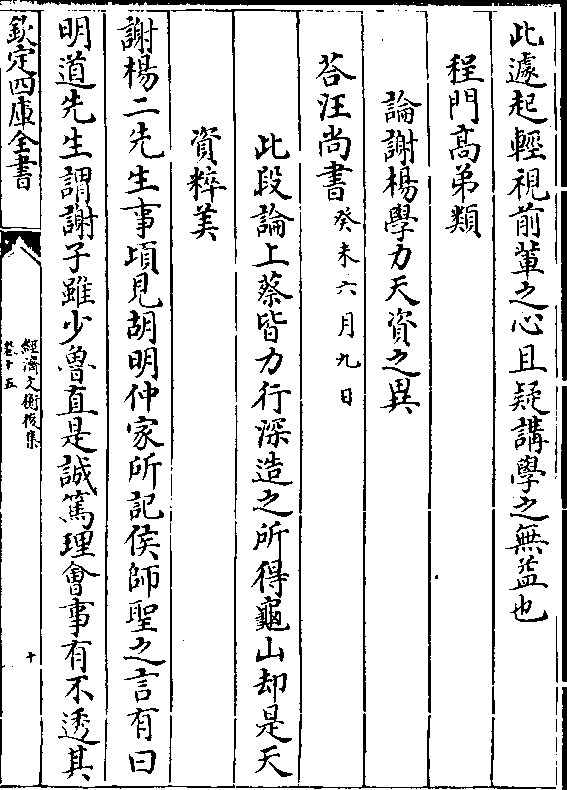 此遽起輕視前輩之心且疑講學之無益也
程門高弟類
論謝楊學力天資之異
荅汪尚書癸未六月九日
此段論上蔡皆力行深造之所得龜山却是天
資粹美
謝楊二先生事頃見胡明仲家所記侯師聖之言有曰
明道先生謂謝子雖少魯直是誠篤理會事有不透其
欽定四庫全書
經濟文衡後集
卷十五
十